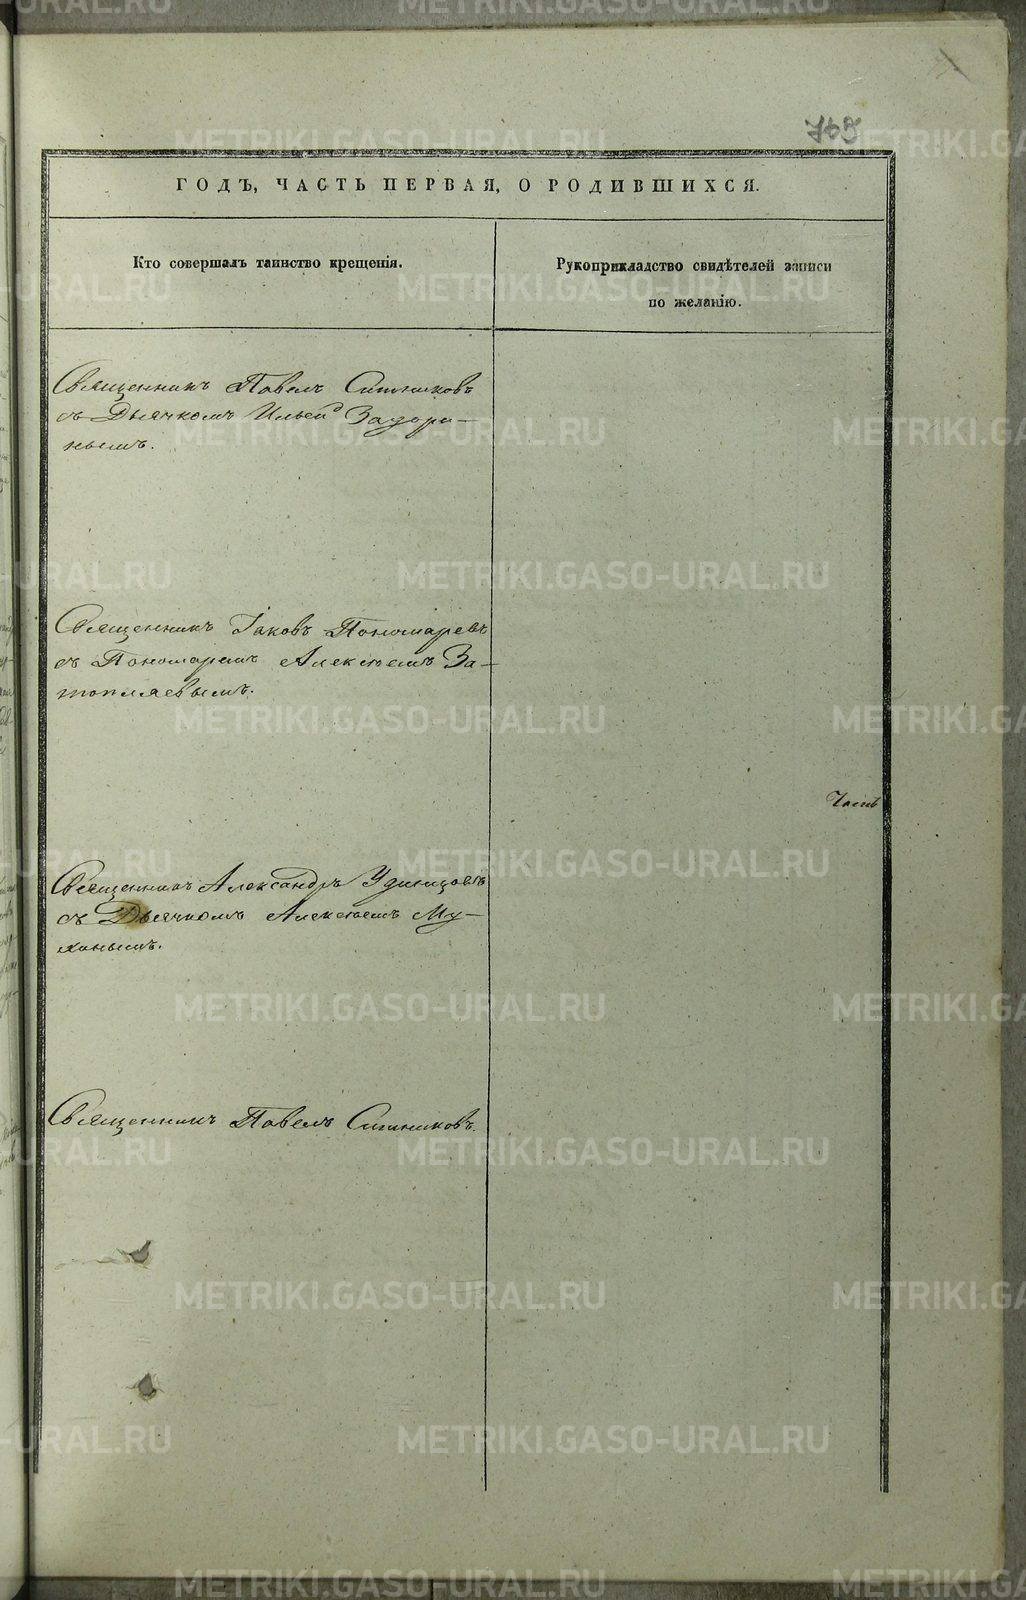 769
ГОДЪ, ЧАСТЬ ПЕРВАЯ, О РОДИВШИХСЯ.
Кто совершалъ таинство крещенія.
Рукоприкладство свидѣтелей записи
по желанію.
Священникъ Павелъ Ситниковъ
съ Дьячкомъ Ильей Задори-
нымъ.
Священникъ Іаковъ Пономаревъ
съ Пономаремъ Алексѣемъ За-
топляевымъ.
Часть
Священникъ Александръ Удинцовъ
съ Дьячкомъ Алексѣемъ Му-
хинымъ.
Священникъ Павелъ Ситниковъ.
METRIKI.GASO-URAL.RU